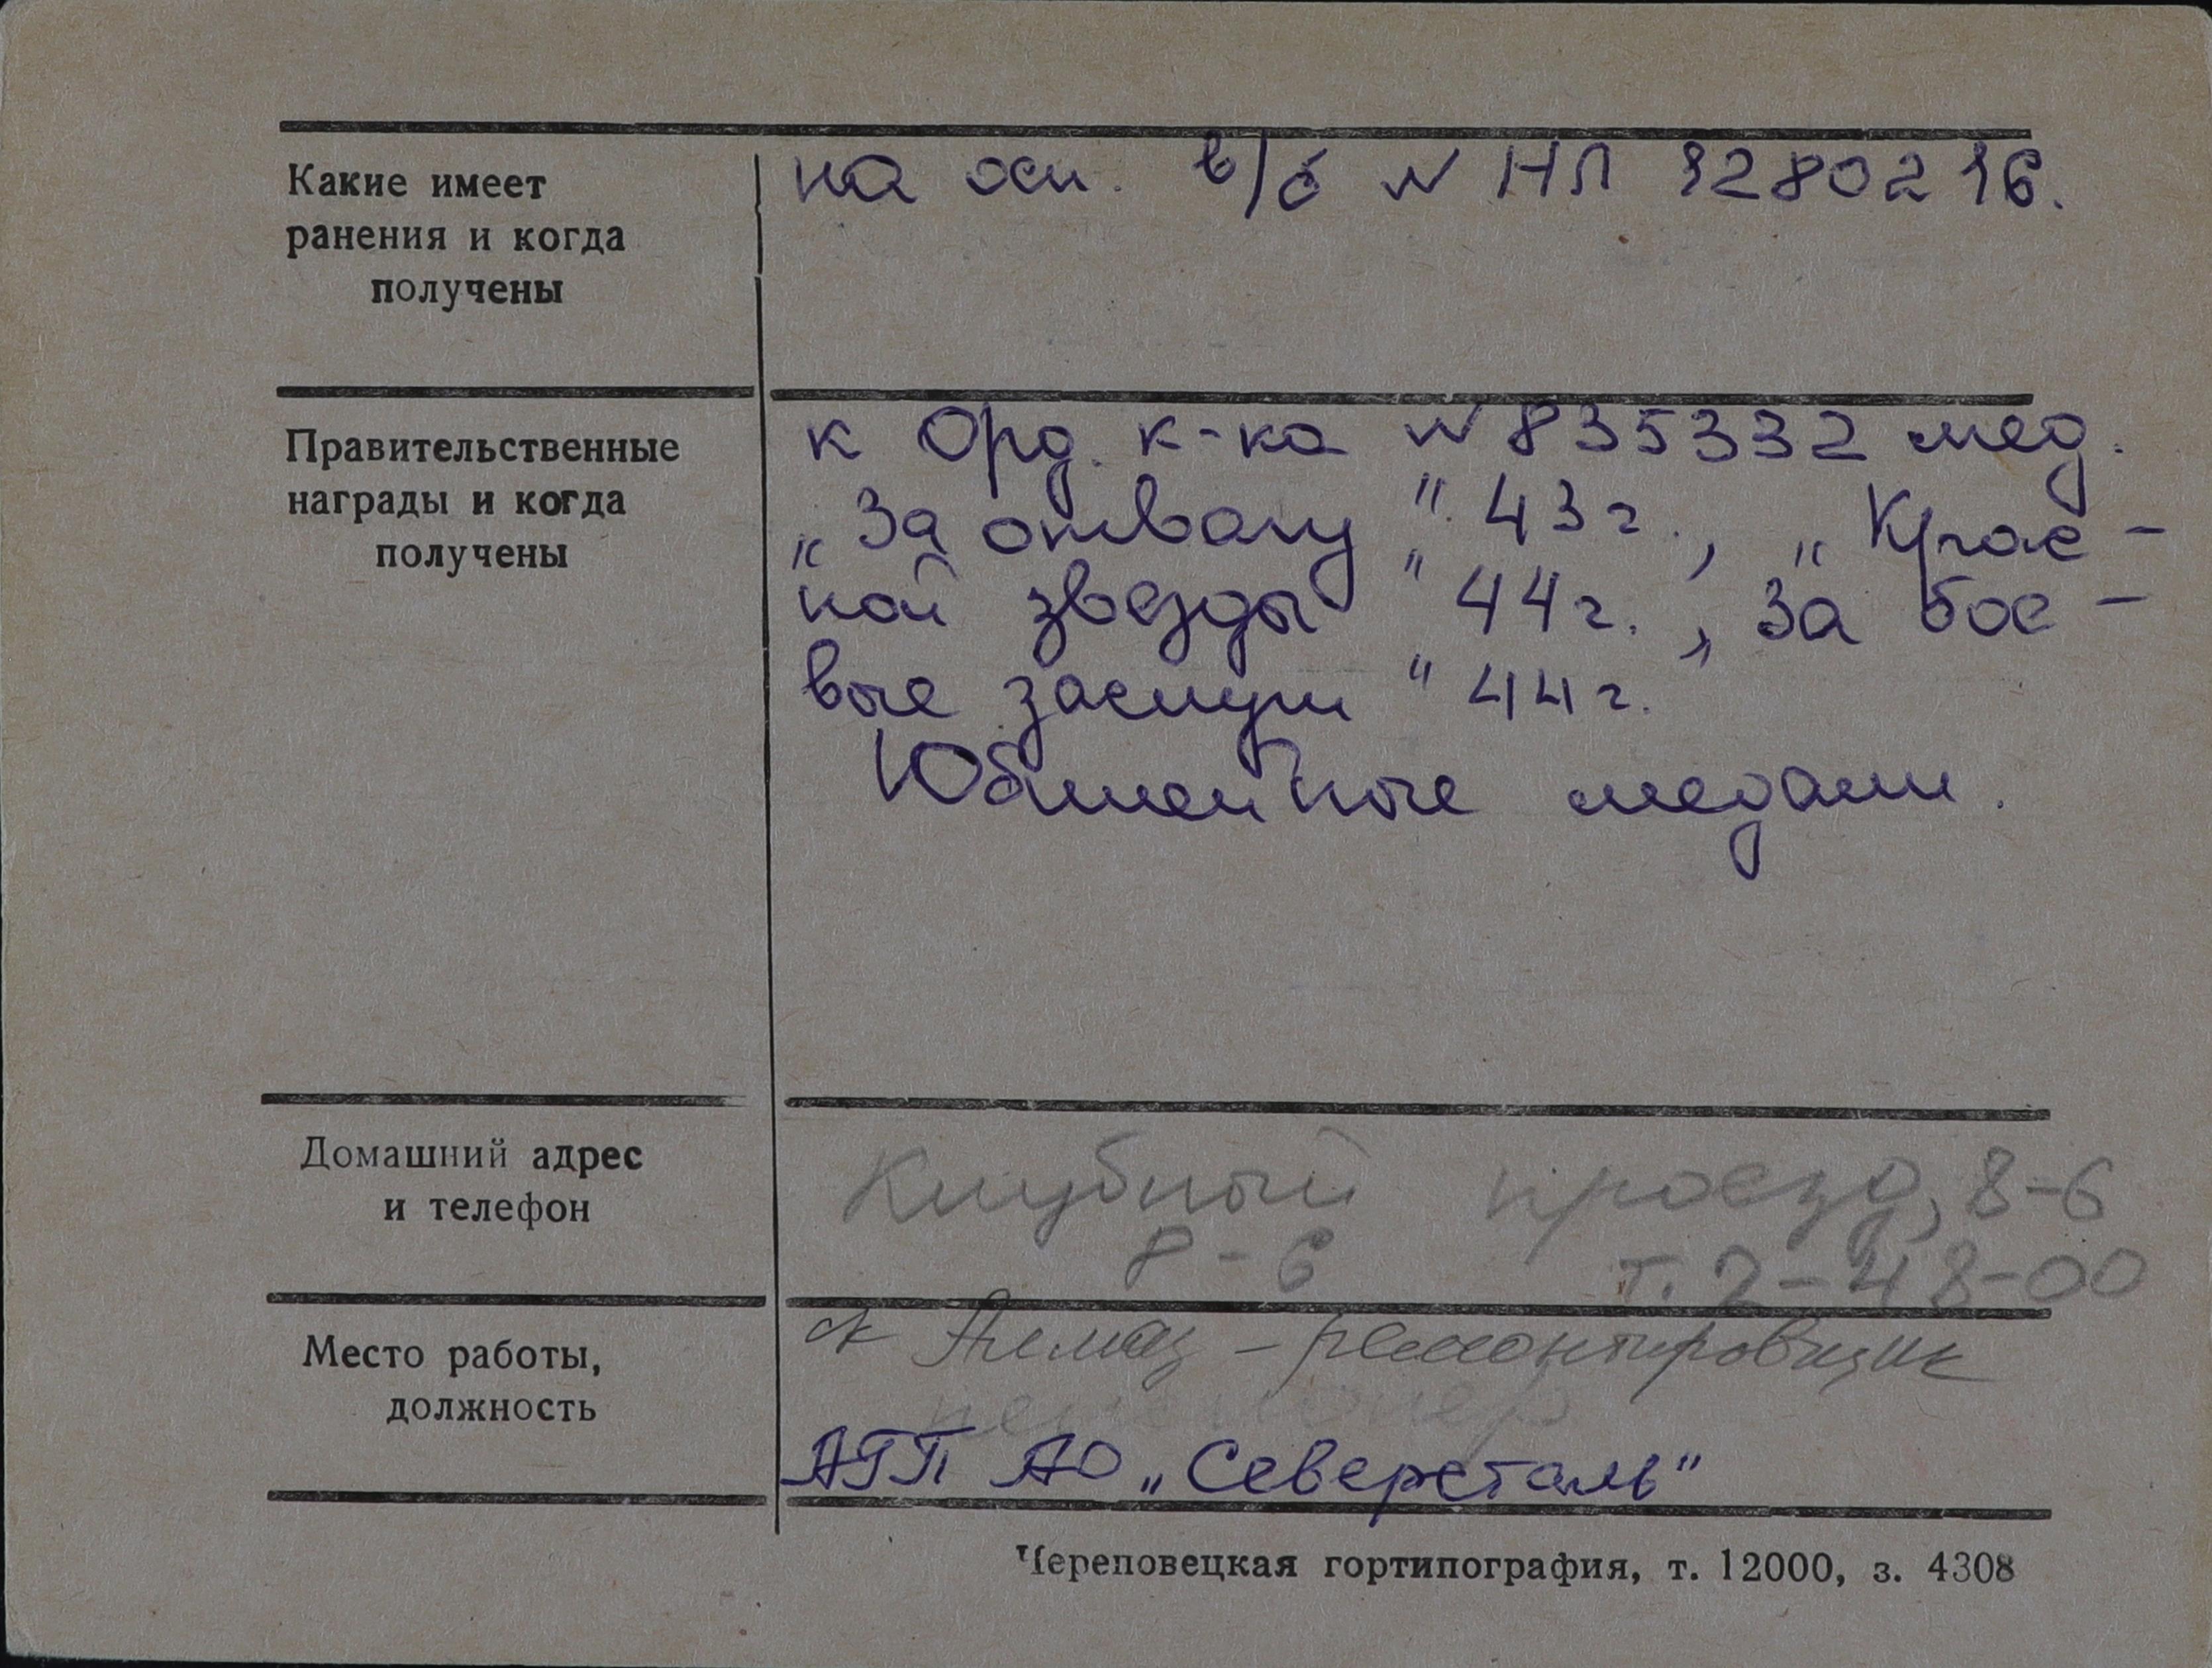 Какие имеет
ранения и когда
получены
на осн. в/б № НЛ 1280216.
Правительственные
награды и когда
получены
к Орд. к-ка № 835332 мед.
„За отвагу" 43г., „Крас-
ной звезды" 44г., „За бое-
вые заслуги" 44г.
Юбилейные медали.
Домашний адрес
и телефон
Клубный проезд, 8-6
8-6 т. 2-48-00
Место работы,
должность
ск Алмаз - ремонтировщик
пенсионер
АТП АО „Северсталь"
Череповецкая гортипография, т. 12000, з. 4308